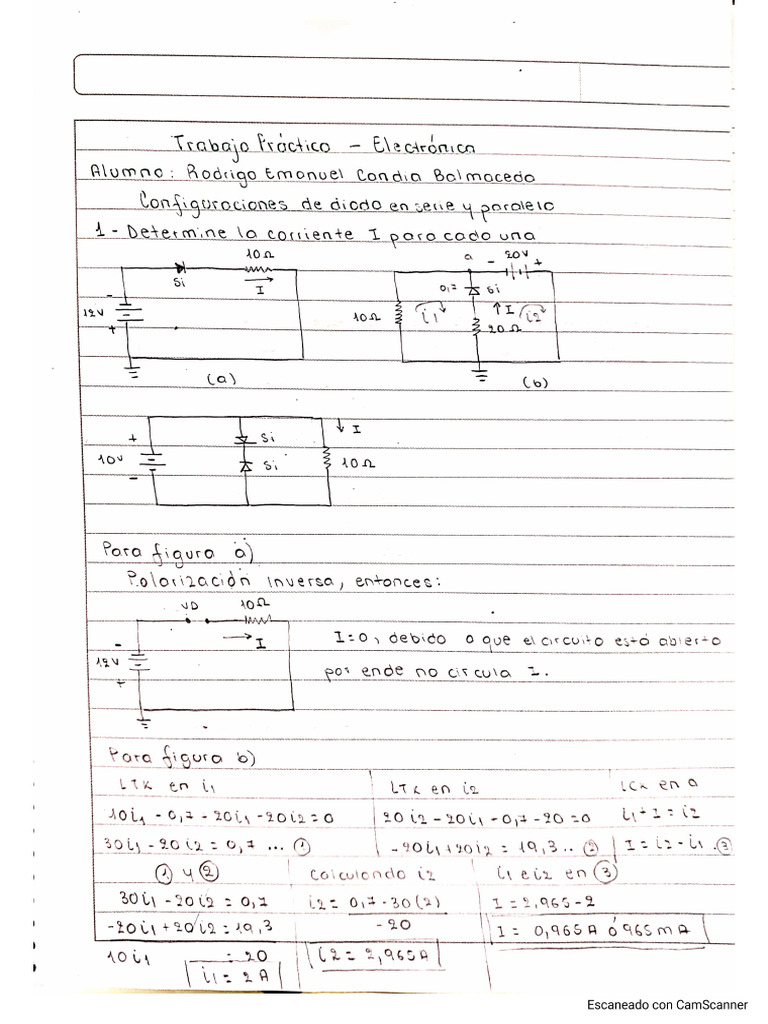 Trabajo Práctico - Electrónica
Alumno: Rodrigo Emanuel Candia Balmaceda
Configuraciones de diodo en serie y paralelo
1 - Determine la corriente I para cada una
10Ω
Si
I
12V
-
+
(a)
a - 20V +
0,7 Si
10Ω
i1
↑I
i2
20Ω
(b)
↓ I
+
Si
10V
Si
10Ω
-
Para figura a)
Polarización inversa, entonces:
VD 10Ω
-
I
12V
+
I=0, debido a que el circuito está abierto
por ende no circula I.
Para figura b)
LTK en i1
10i1 - 0,7 - 20i1 - 20i2 = 0
30i1 - 20i2 = 0,7 ... ①
LTK en i2
20i2 - 20i1 - 0,7 - 20 = 0
-20i1 + 20i2 = 19,3 .. ②
LCK en a
i1 + I = i2
I = i2 - i1 . ③
① y ②
30i1 - 20i2 = 0,7
-20i1 + 20i2 = 19,3
10i1 = 20
i1 = 2A
Calculando i2
i2 = 0,7 - 30(2)
-20
i2 = 2,965A
i1 e i2 en ③
I = 2,965 - 2
I = 0,965A ó 965mA
Escaneado con CamScanner